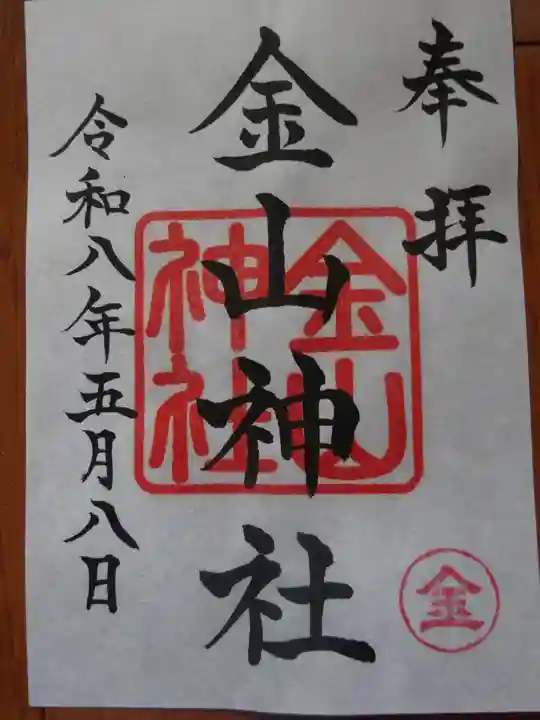 奉拝
金山神社
金山
神社
令和八年五月八日
金